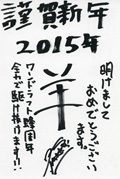 謹賀新年
2015年
羊
明けまして
おめでとうござい
ます。
ワンドラフト踏固年
全力で駆け抜けます!!